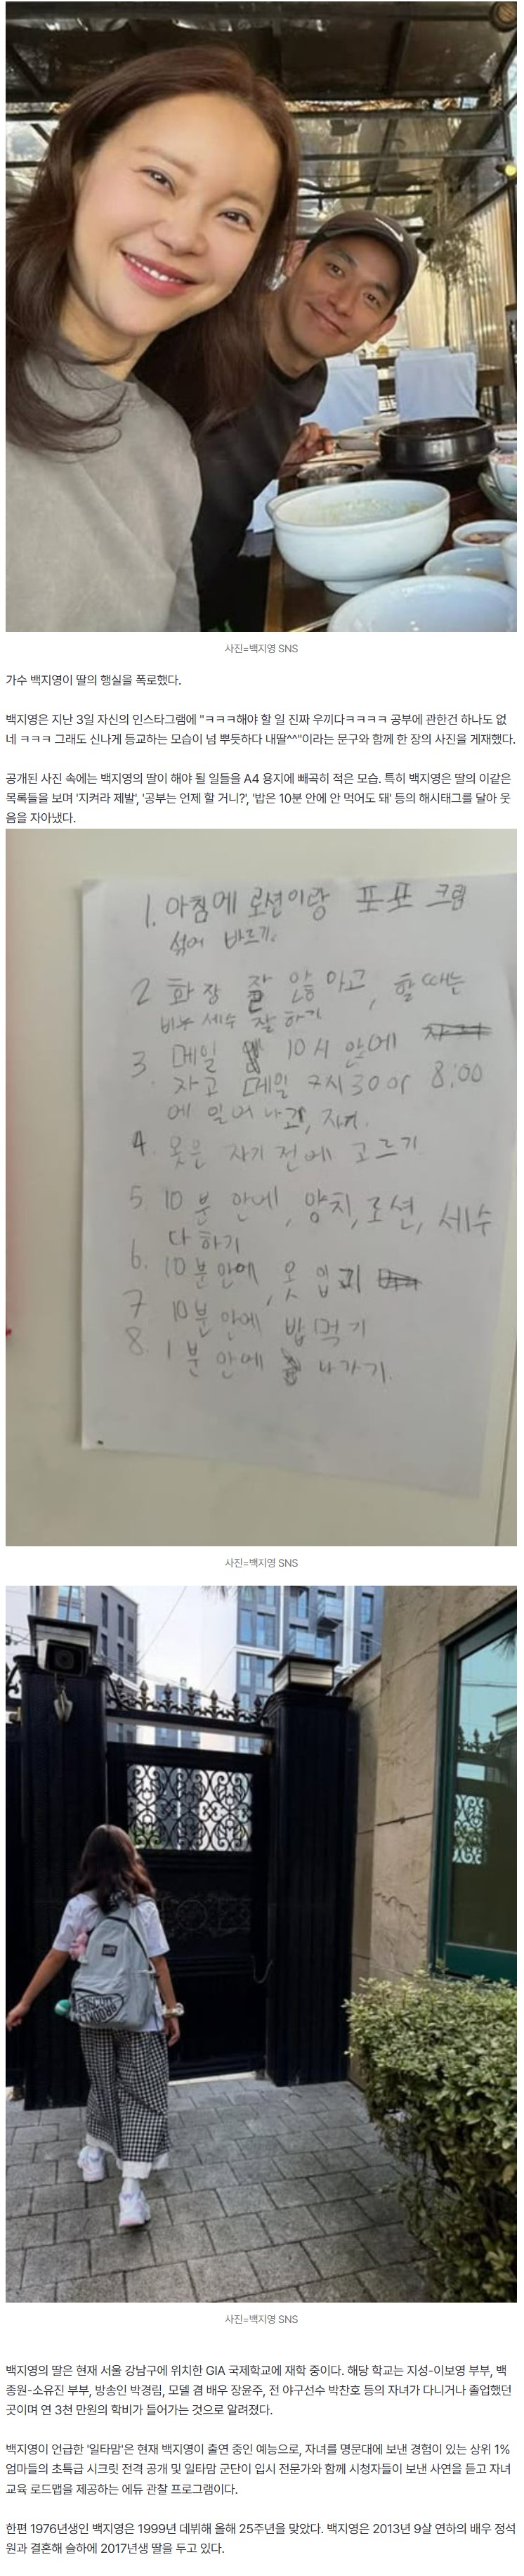 사진=백지영 SNS
가수 백지영이 딸의 행실을 폭로했다.
백지영은 지난 3일 자신의 인스타그램에 "ㅋㅋㅋ해야 할 일 진짜 우끼다ㅋㅋㅋㅋ 공부에 관한건 하나도 없
네 ㅋㅋㅋ 그래도 신나게 등교하는 모습이 넘 뿌듯하다 내딸^^"이라는 문구와 함께 한 장의 사진을 게재했다.
공개된 사진 속에는 백지영의 딸이 해야 될 일들을 A4 용지에 빼곡히 적은 모습. 특히 백지영은 딸의 이같은
목록들을 보며 '지켜라 제발', '공부는 언제 할 거니?', '밥은 10분 안에 안 먹어도 돼' 등의 해시태그를 달아 웃
음을 자아냈다.
1. 아침에 로션이랑 포포 크림
섞어 바르기.
2 화장 잘 않 하고, 할 때는
비누 세수 잘 하기
3. 매일 10시 안에
자고 매일 7시 30 or 8:00
에 일어나고, 자기.
4. 옷은 자기 전에 고르기
5. 10분 안에, 양치, 로션, 세수
다 하기
6. 10분안에, 옷 입기
7 10분 안에 밥 먹기
8. 1분 안에 나가기.
사진=백지영 SNS
사진=백지영 SNS
백지영의 딸은 현재 서울 강남구에 위치한 GIA 국제학교에 재학 중이다. 해당 학교는 지성-이보영 부부, 백
종원-소유진 부부, 방송인 박경림, 모델 겸 배우 장윤주, 전 야구선수 박찬호 등의 자녀가 다니거나 졸업했던
곳이며 연 3천 만원의 학비가 들어가는 것으로 알려졌다.
백지영이 언급한 '일타맘'은 현재 백지영이 출연 중인 예능으로, 자녀를 명문대에 보낸 경험이 있는 상위 1%
엄마들의 초특급 시크릿 전격 공개 및 일타맘 군단이 입시 전문가와 함께 시청자들이 보낸 사연을 듣고 자녀
교육 로드맵을 제공하는 에듀 관찰 프로그램이다.
한편 1976년생인 백지영은 1999년 데뷔해 올해 25주년을 맞았다. 백지영은 2013년 9살 연하의 배우 정석
원과 결혼해 슬하에 2017년생 딸을 두고 있다.